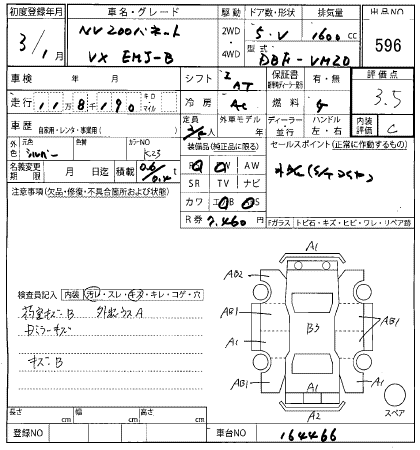 初度登録年月 車名・グレード 駆動 ドア数・形状 排気量 出品NO
31年1月 NV200バネット 2WD 5.V 1600cc 596
VX EMJ-B 4WD 型式 DBF-VM20
車検 年 月 シフト AT 保証書 有・無 評価点
走行 11万8千190 キロ・マイル 冷房 AC 燃料 G 3.5
車歴 自家用・レンタ・事業用( ) 定員 外車モデル ディーラー・並行 ハンドル 左・右 内装評価 C
外色 元色 シルバー 色替 カラーNO K23 装備品(純正品に限る) セールスポイント(正常に作動するもの)
名義変更期限 月 日迄 積載 PS PW AW
SR TV ナビ
注意事項(欠品・修復・不具合箇所および状態) カワ
R券 7,460円 Fガラス トビ石・キズ・ヒビ・ワレ・リペア跡
A1
AB2 AB2
検査員記入 内装 汚レ・スレ・キズ・キレ・コゲ・穴
荷室キズB AB1 B3 AB1
ミラーキズ A1 A1
キズB AB1 A1
A1
A2 スペア
長さ cm 幅 cm 高さ cm
登録NO 車台NO 164466